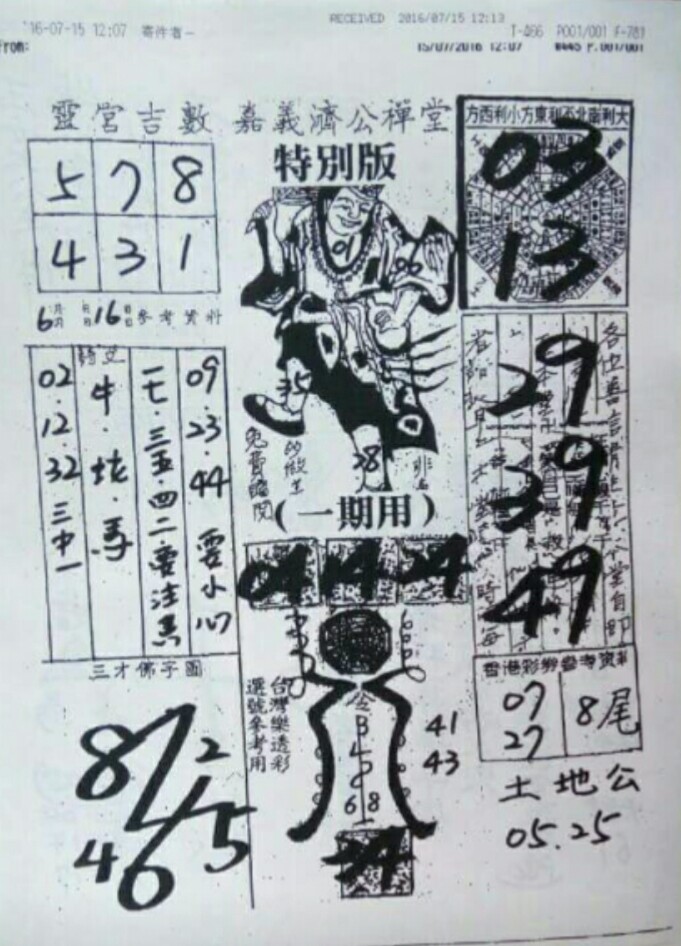 '16-07-15 12:07 寄件者一
RECEIVED 2016/07/15 12:13
T-466 P001/001 F-781
From:
15/07/2016 12:07
#445 P.001/001
靈宮吉數 嘉義濟公禪堂
特別版
大利南北不利東方小利西方
03
13
5 7 8
4 3 1
6月16日參考資料
09.23.44 要小心
七.三五.四二要注意
詩文
牛.蛇.馬
02.12.32三中一
01
00
35
28
免費贈閱
(一期用)
29
39
49
04 14 24
三才佛字圖
8 2
4 6 5
台灣樂透彩
選號參考用
3
6 8
34
41
43
香港彩券參考資料
07
27
8尾
土地公
05.25